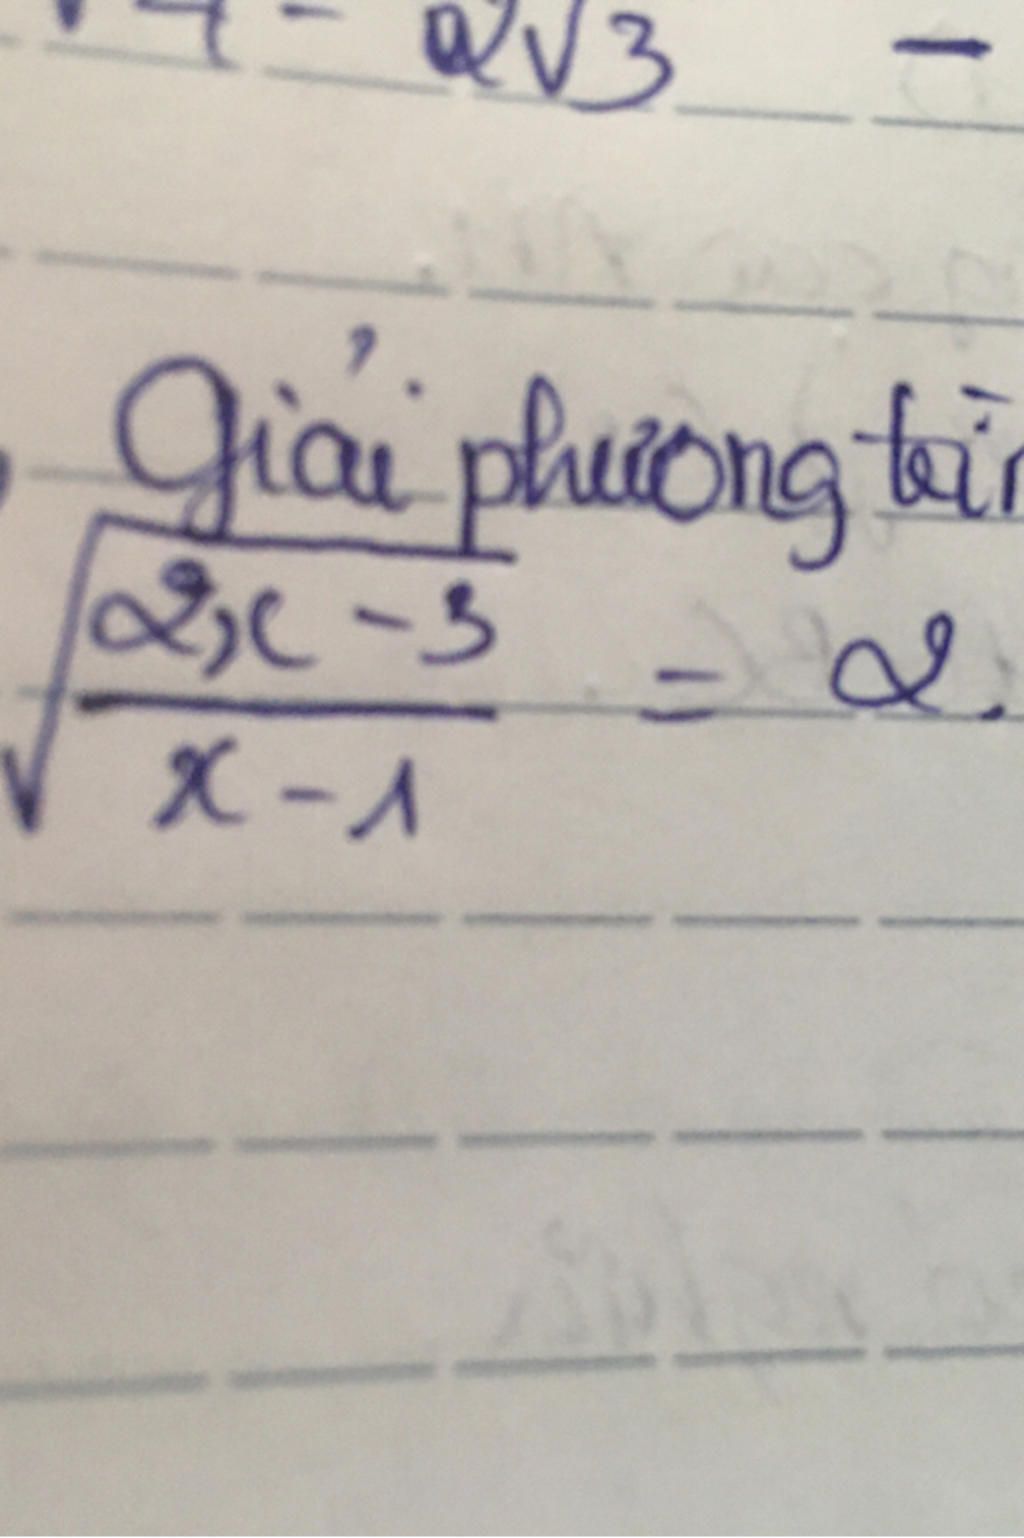 √4 - 2√3 -
Giải phương trìn
√((2x - 3)/(x - 1)) = 2.